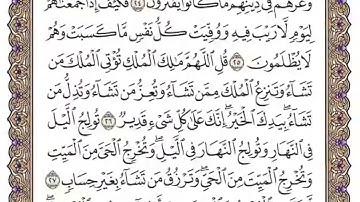 وَغَرَّهُمْ فِي دِينِهِم مَّا كَانُوا۟ يَفْتَرُونَ ٢٤ فَكَيْفَ إِذَا جَمَعْنَٰهُمْ
لِيَوْمٍ لَّا رَيْبَ فِيهِ وَوُفِّيَتْ كُلُّ نَفْسٍ مَّا كَسَبَتْ وَهُمْ
لَا يُظْلَمُونَ ٢٥ قُلِ ٱللَّهُمَّ مَٰلِكَ ٱلْمُلْكِ تُؤْتِي ٱلْمُلْكَ مَن
تَشَآءُ وَتَنزِعُ ٱلْمُلْكَ مِمَّن تَشَآءُ وَتُعِزُّ مَن تَشَآءُ وَتُذِلُّ مَن
تَشَآءُ ۖ بِيَدِكَ ٱلْخَيْرُ ۖ إِنَّكَ عَلَىٰ كُلِّ شَىْءٍ قَدِيرٌ ٢٦ تُولِجُ ٱلَّيْلَ
فِي ٱلنَّهَارِ وَتُولِجُ ٱلنَّهَارَ فِي ٱلَّيْلِ ۖ وَتُخْرِجُ ٱلْحَىَّ مِنَ ٱلْمَيِّتِ
وَتُخْرِجُ ٱلْمَيِّتَ مِنَ ٱلْحَىِّ ۖ وَتَرْزُقُ مَن تَشَآءُ بِغَيْرِ حِسَابٍ ٢٧